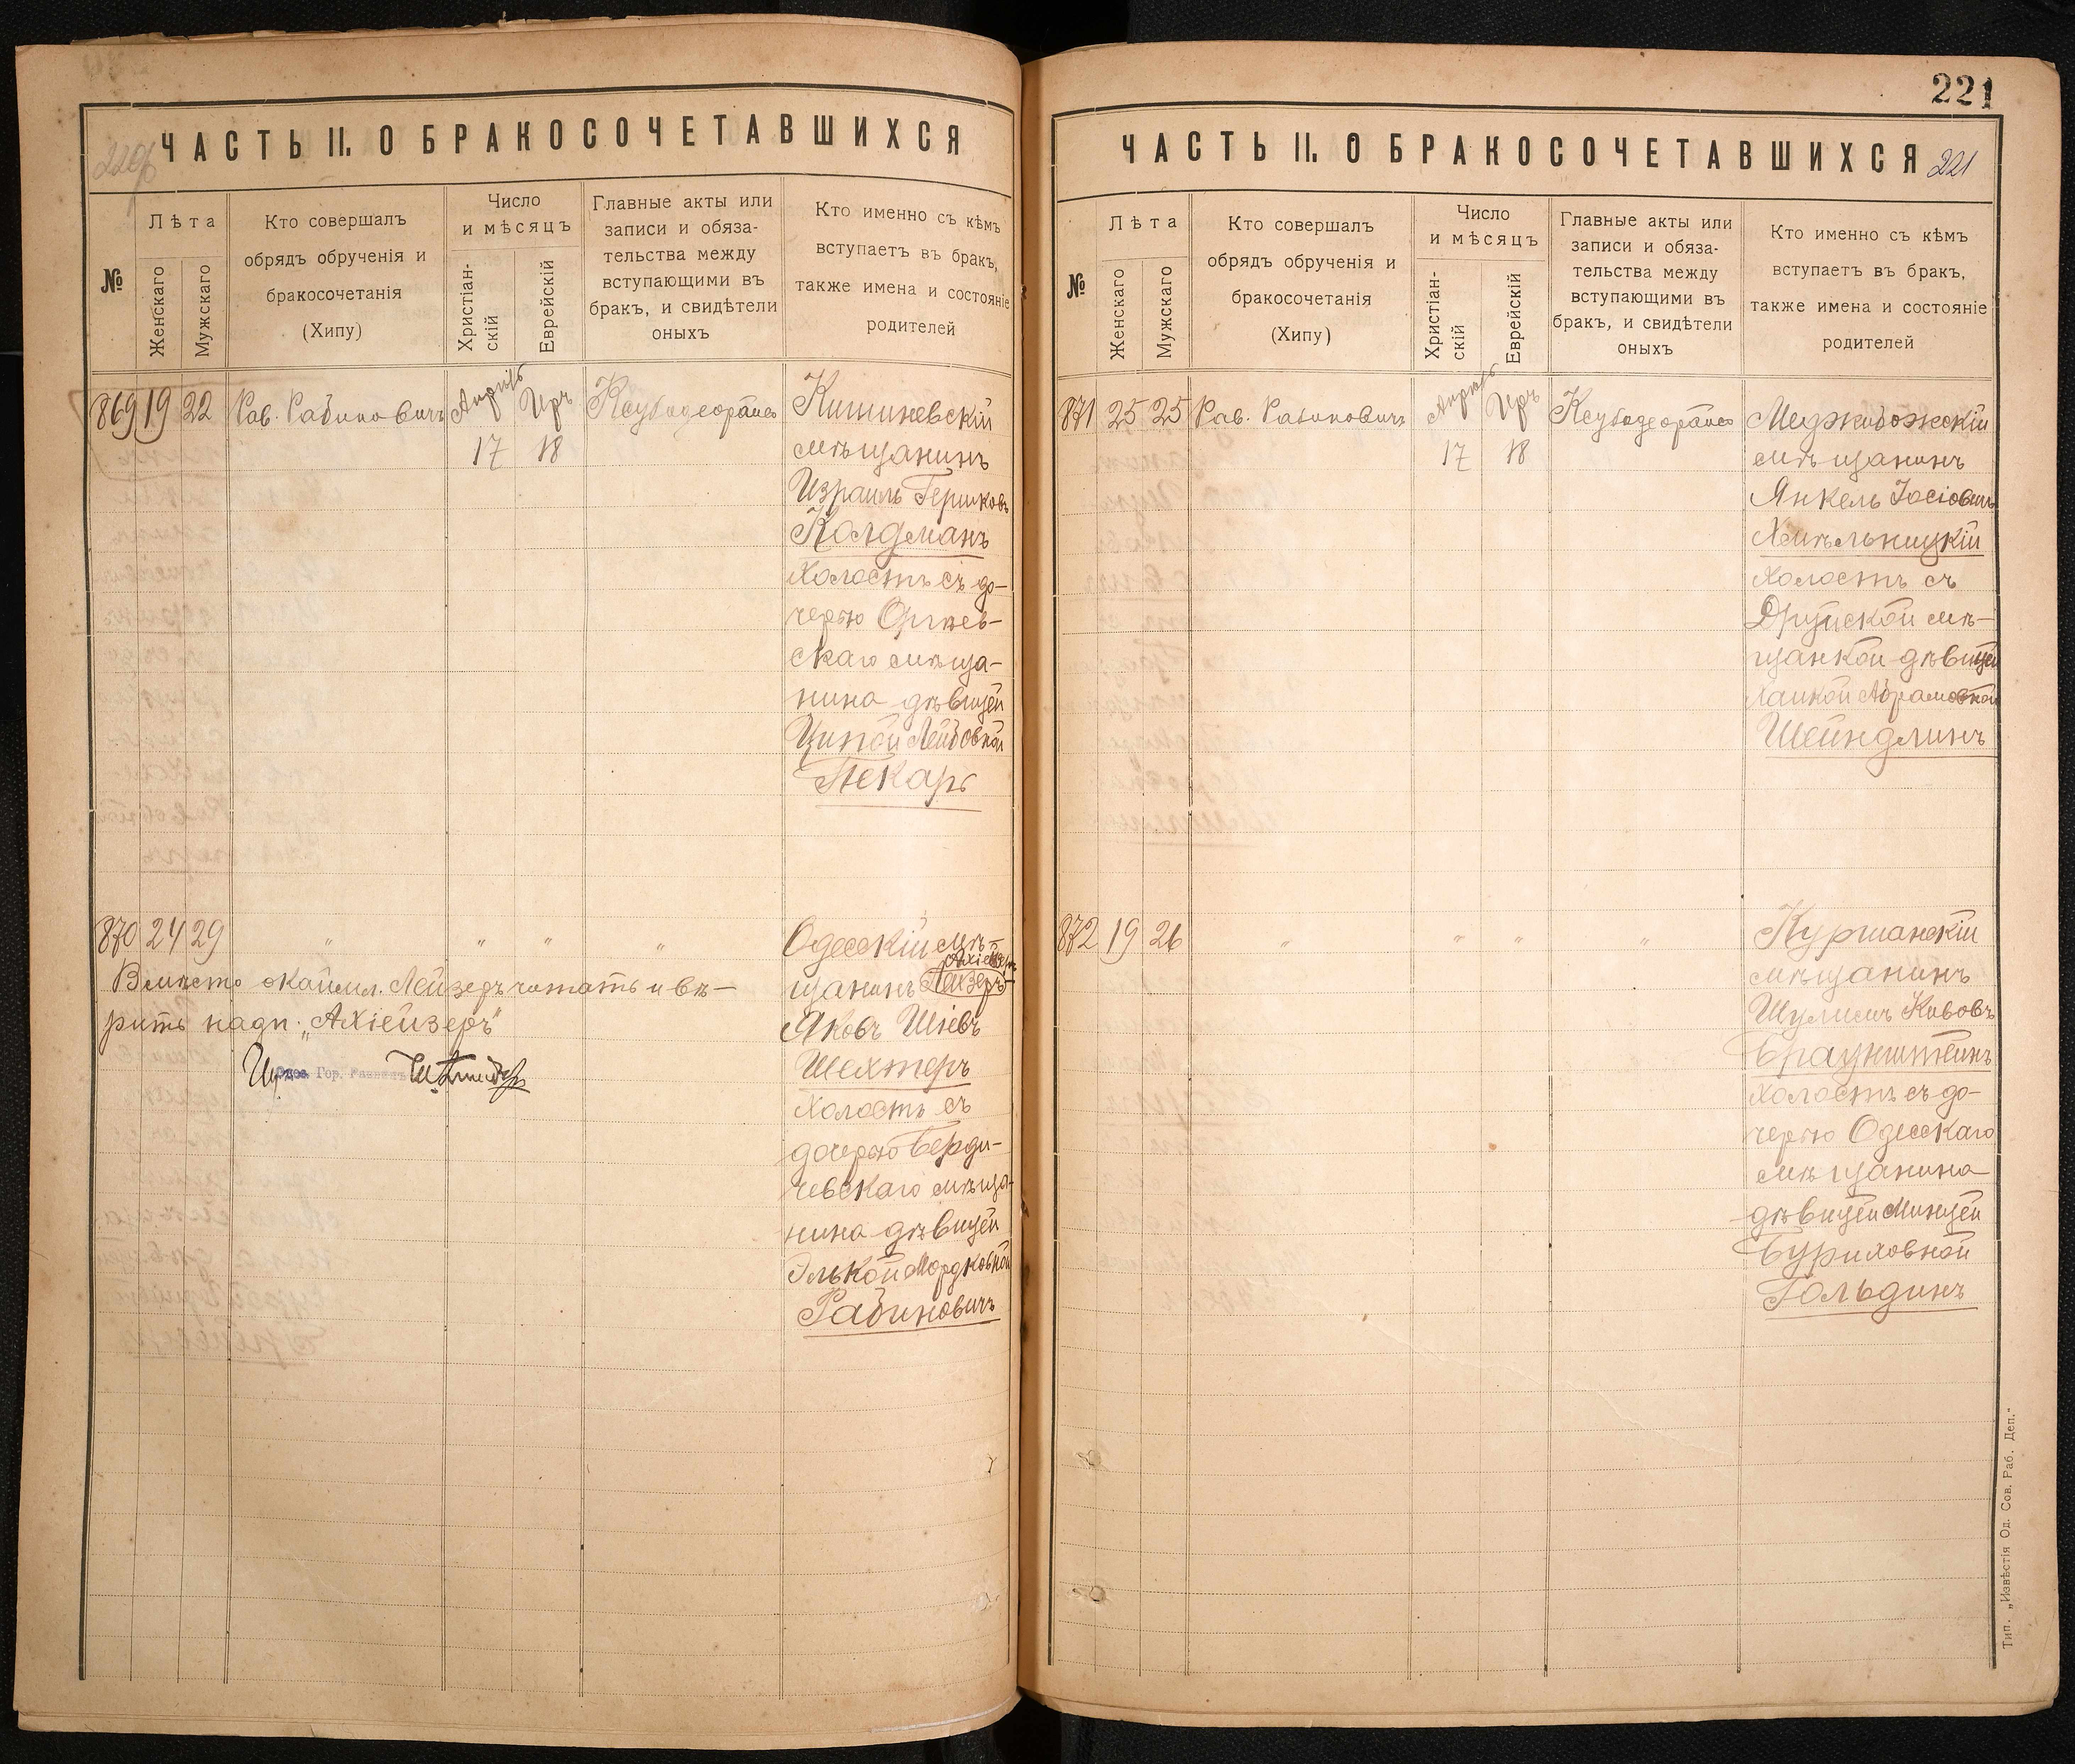 220/б
ЧАСТЬ II. О БРАКОСОЧЕТАВШИХСЯ
№
Лѣта
Женскаго
Мужскаго
Кто совершалъ
обрядъ обрученія и
бракосочетанія
(Хипу)
Число
и мѣсяцъ
Христіан-
скій
Еврейскій
Главные акты или
записи и обяза-
тельства между
вступающими въ
бракъ, и свидѣтели
оныхъ
Кто именно съ кѣмъ
вступаетъ въ бракъ,
также имена и состояніе
родителей
869 19 22 Рав. Рабиновичъ
Апрѣль 17
Иръ 18
Кишиневскій
мѣщанинъ
Израиль Гершковъ
Колдманъ
холостъ съ до-
черью Оргѣев-
скаго мѣща-
нина дѣвицей
Ципой Лейбовной
Пекарь
870 24 29 " " " "
Одесскій мѣ-
щанинъ Лейзеръ-
Ахіейзеръ
Яковъ Шіевъ
Шехтеръ
холостъ съ
дочерью Берди-
чевскаго мѣща-
нина дѣвицей
Элькой Мордковной
Рабиновичъ
Вмѣсто окаймл. Лейзеръ читать и вѣ-
рить надп. „Ахіейзеръ"
Одес. Гор. Раввинъ
221
ЧАСТЬ II. О БРАКОСОЧЕТАВШИХСЯ 221
№
Лѣта
Женскаго
Мужскаго
Кто совершалъ
обрядъ обрученія и
бракосочетанія
(Хипу)
Число
и мѣсяцъ
Христіан-
скій
Еврейскій
Главные акты или
записи и обяза-
тельства между
вступающими въ
бракъ, и свидѣтели
оныхъ
Кто именно съ кѣмъ
вступаетъ въ бракъ,
также имена и состояніе
родителей
871 25 25 Рав. Рабиновичъ
Апрѣль 17
Иръ 18
Меджибожскій
мѣщанинъ
Янкель Іосіовичъ
Хмѣльницкій
холостъ съ
Друйской мѣ-
щанкой дѣвицей
Абрамовной
Шейндлинъ
872 19 26 " " " "
мѣщанинъ
Шулимъ Кивовъ
Браунштейнъ
холостъ съ до-
черью Одесскаго
мѣщанина
дѣвицей Минцей
Буриховной
Гольдинъ
Тип. „Извѣстія Од. Сов. Раб. Деп."